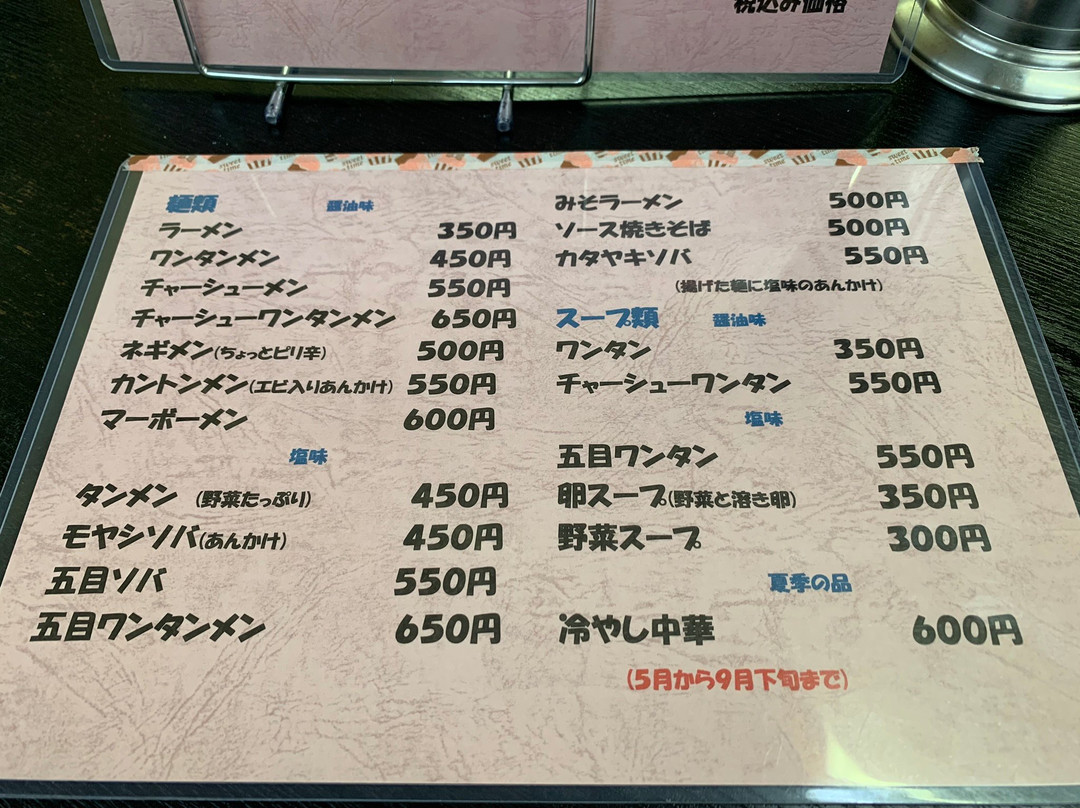 税込み価格
麺類 醤油味
ラーメン 350円
ワンタンメン 450円
チャーシューメン 550円
チャーシューワンタンメン 650円
ネギメン(ちょっとピリ辛) 500円
カントンメン(エビ入りあんかけ) 550円
マーボーメン 600円
塩味
タンメン (野菜たっぷり) 450円
モヤシソバ(あんかけ) 450円
五目ソバ 550円
五目ワンタンメン 650円
みそラーメン 500円
ソース焼きそば 500円
カタヤキソバ 550円
(揚げた麺に塩味のあんかけ)
スープ類 醤油味
ワンタン 350円
チャーシューワンタン 550円
塩味
五目ワンタン 550円
卵スープ(野菜と溶き卵) 350円
野菜スープ 300円
夏季の品
冷やし中華 600円
(5月から9月下旬まで)